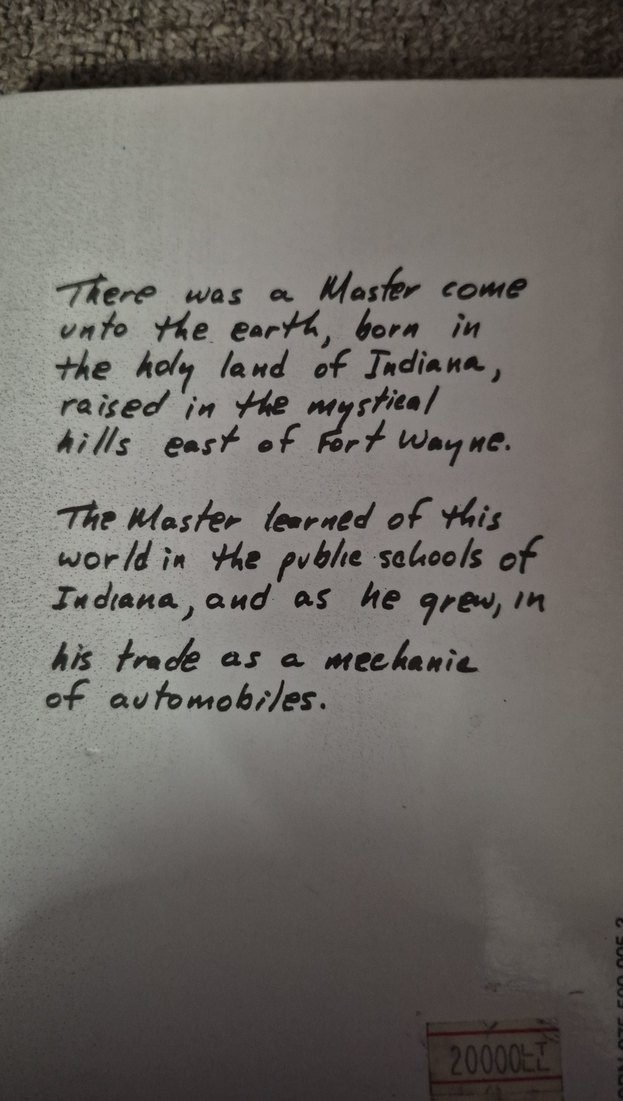 There was a Master come
unto the earth, born in
the holy land of Indiana,
raised in the mystical
hills east of Fort Wayne.
The Master learned of this
world in the public schools of
Indiana, and as he grew, in
his trade as a mechanic
of automobiles.
20000